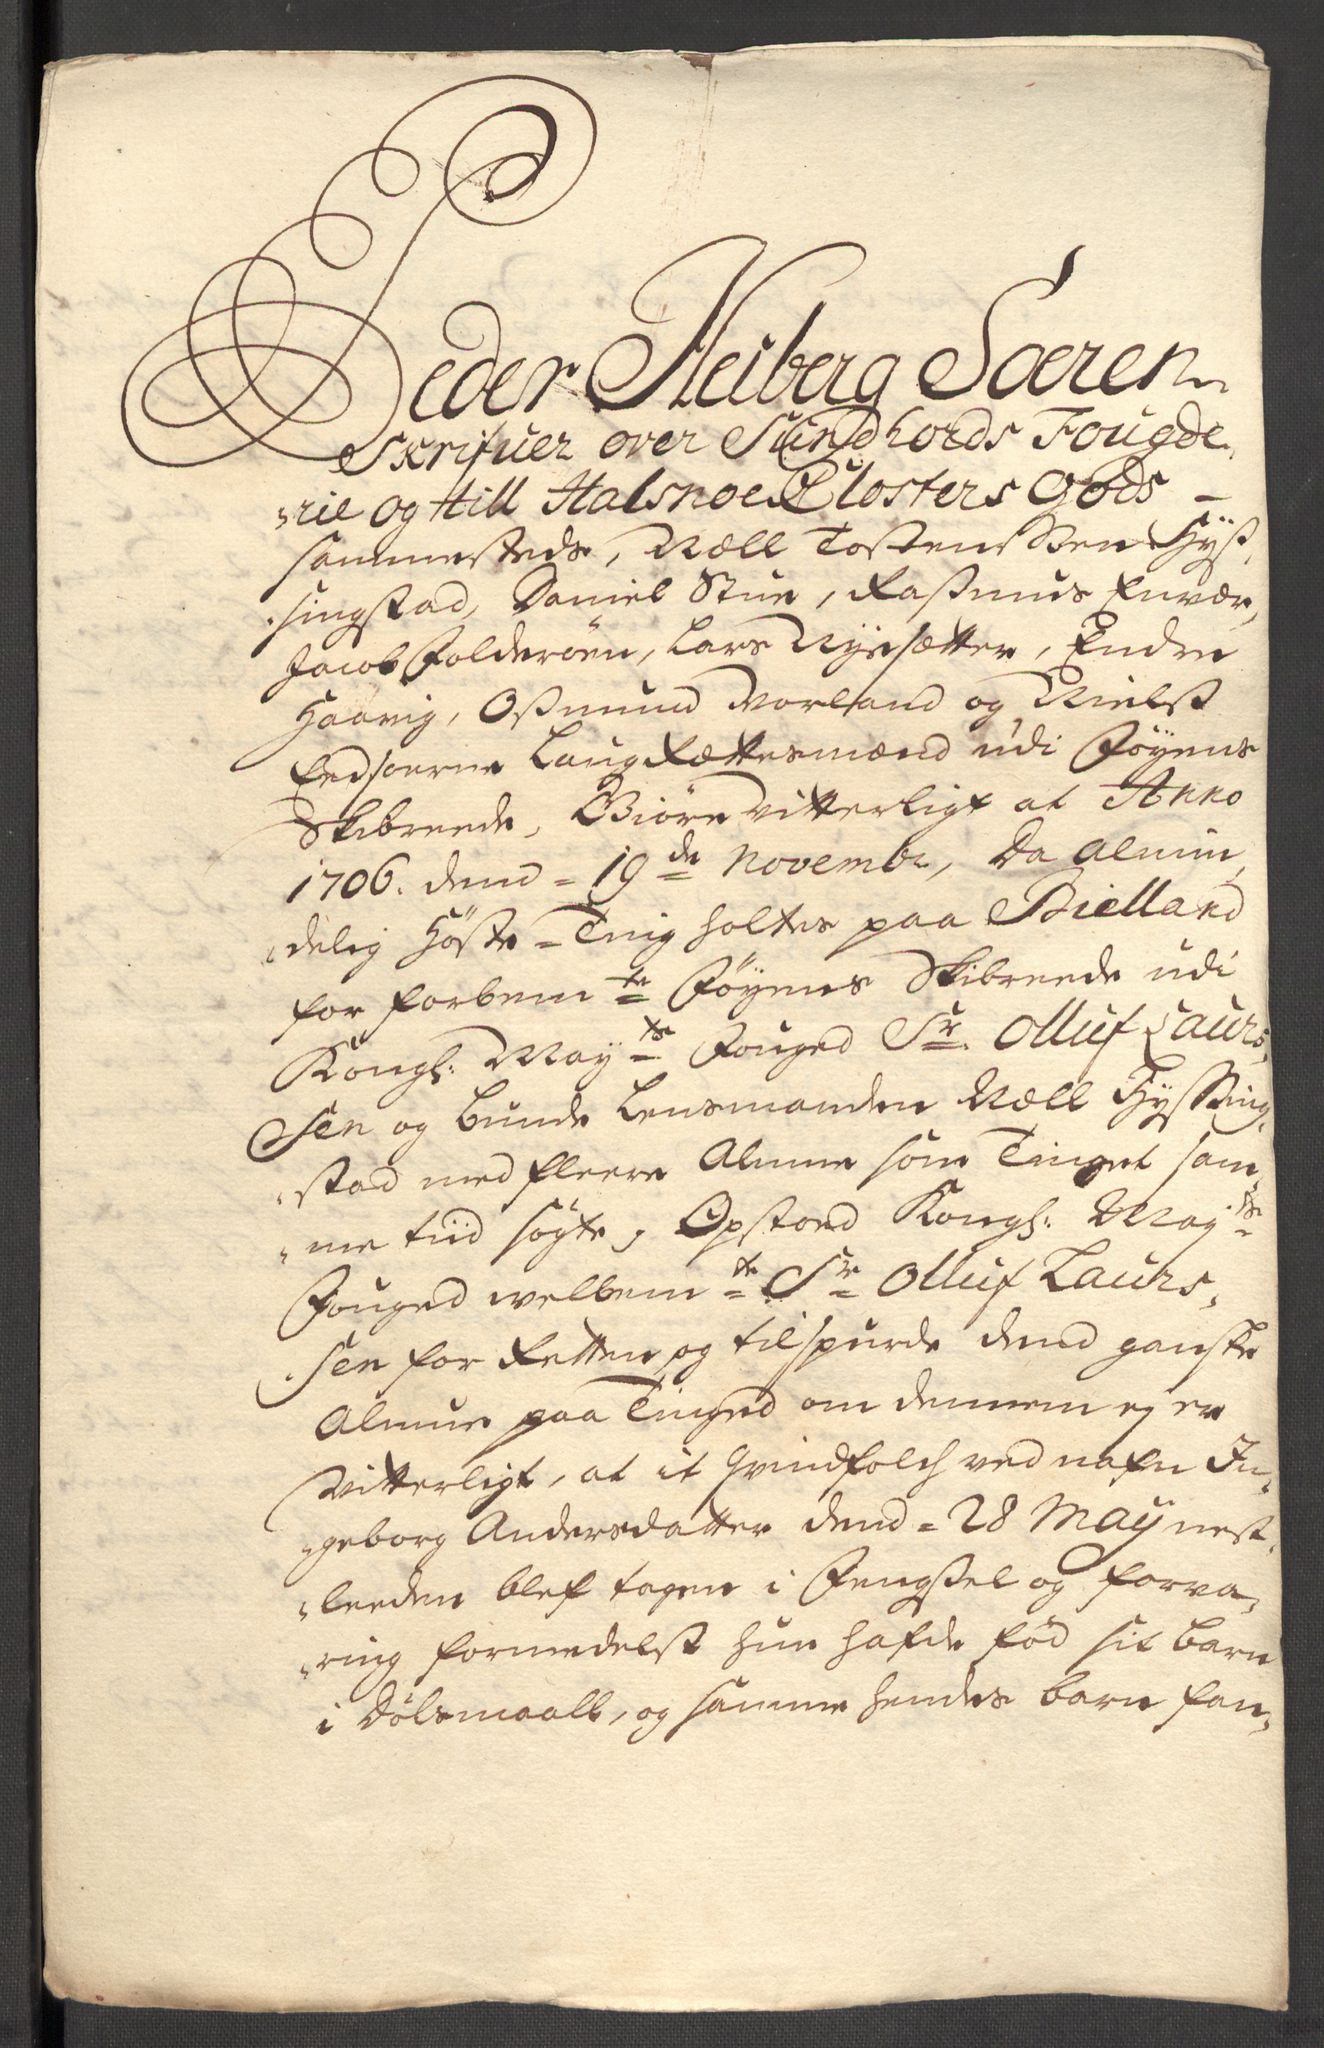 Peder Heiberg Soeren-
Skrifuer over Sundhords Fougde,
„rie og till Halsnoe Closters Gods -
sammesteds, Næll Tostenssen Hyß,
„singstad, Daniel Stue, Raßmus Envær,
Jacob Folderöen, Lars Nysætter, Endre
Haavig, Oßmund Vorland og Nielß
Eedsoerne Laug Rættesmænd udi Föyens
Skibreede, Giöre vitterligt at Anno
1706. dend = 19de Novembr, Da Almin,
„delig Höste=Ting holtes paa Bielland
for forbemte Föyens Skibreede udi
Kongl: Mayts Fouged Sr. Olluf Laurs,
„sen og bunde Lensmanden Næll Hyssing,
„stad med fleere Almue som Tinget sam,
„me tiid sögte, Opstoed Kongl: Mayts
Fouged welbemte Sr Olluf Laurs,
„sen for Retten og tilspurde dend ganske
Almue paa Tinged om dennem ej er
Vitterligt, at it Qvindfolch ved nafn In,
„geborg Andersdatter dend = 28 May nest,
„leeden blef tagen i Fengßel og forva,
„ring formedelst hun hafde föd sit barn
i Dölsmaall, og samme hendes barn fan,